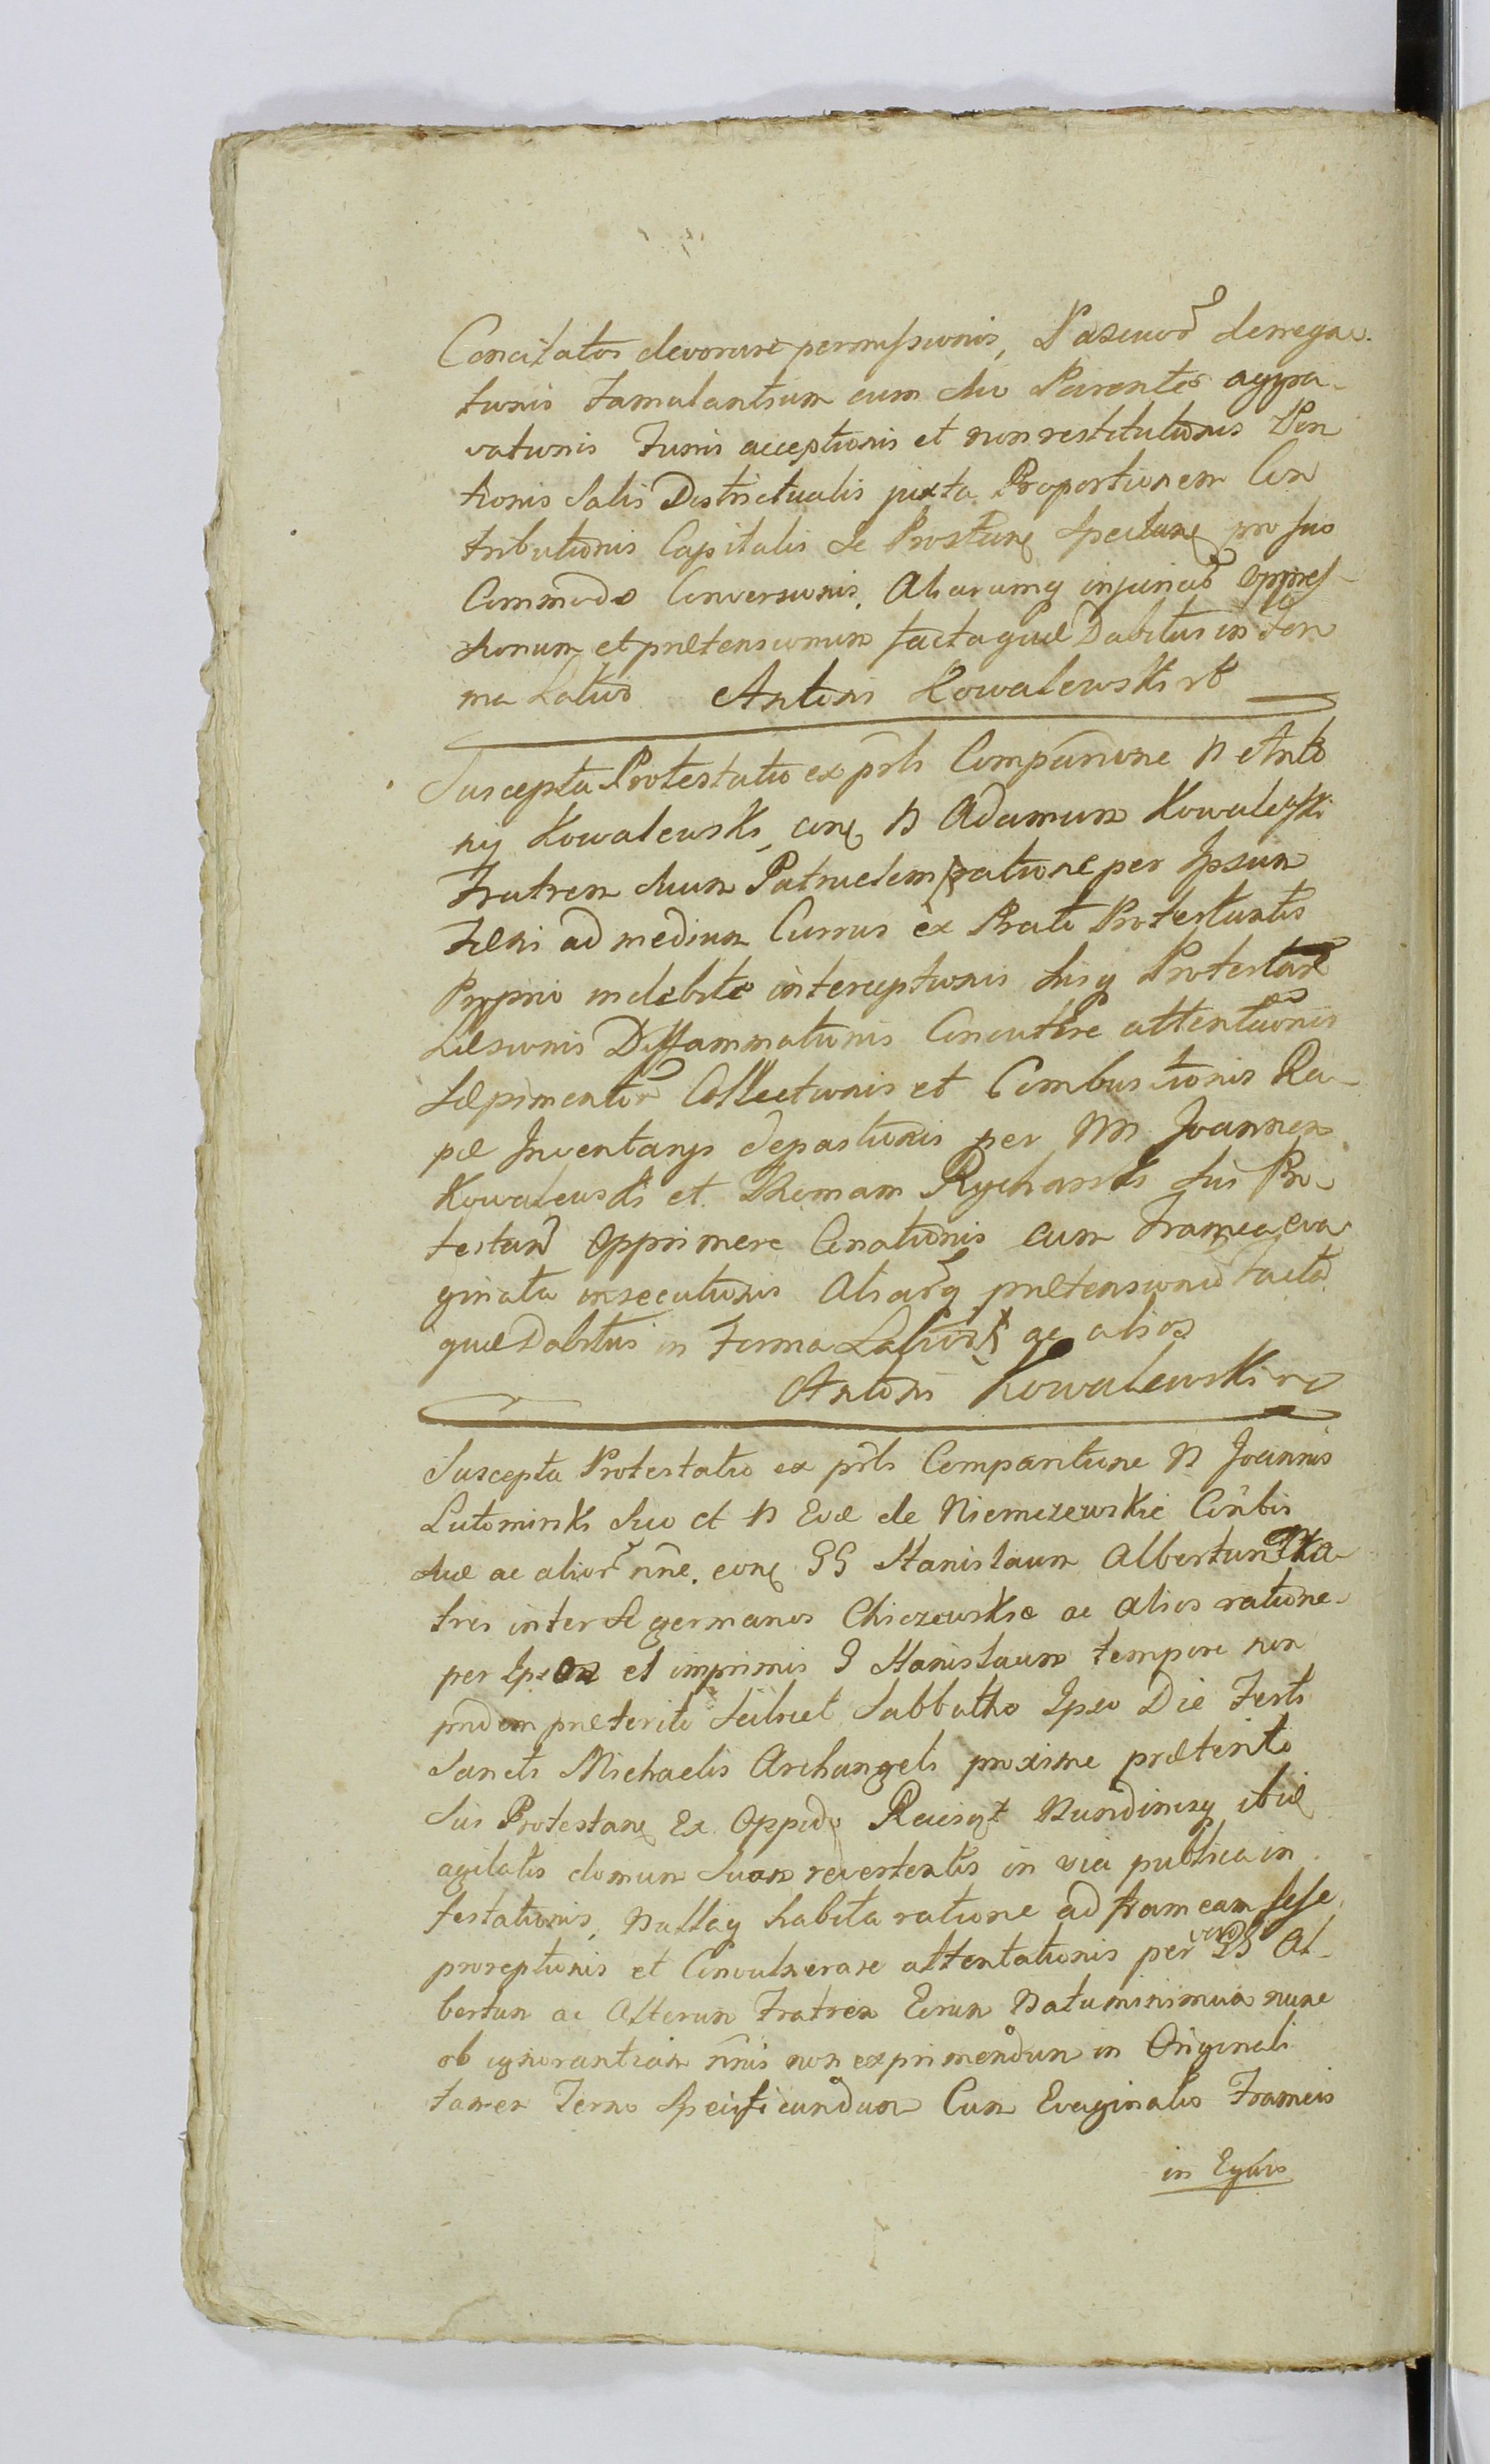 Concitatos devorare permissionis, Pascuor denega-
tionis Famulantium cum suo Parente aggra-
vationis Funis acceptionis et non restitutionis Por
tionis Salis Districtualis juxta Proportionem Con
tributionis Capitalis se Prostane spectane pro suo
Commodo Conversionis, Aliarumq injuriar Oppres-
sionum et prætensionum facta quæ Dabitur in For
ma Latior Antoni Kowalewski
Suscepta Protestatio ex prsti Comparitione N Anto
nij Kowalewski, con N Adamum Kowalewski
Fratrem Suum Patruelem ratione per Ipsum
Fæni ad medium Currus ex Prato Protestantis
Proprio indebite interceptionis Sisq Protestare
Læsionis Diffammationis Concutere attentationis
Sæpimentor Collectionis et Combustionis Ra-
pæ Inventarijs depastionis per NN Joannem
Kowalewski et Thomam Rycharski sui Pro-
testan Opprimere Conationis cum Framea eva
ginata insecutionis Aliarq prætension facta
quæ Dabitur in Forma Latiori ac alios
Antoni Kowalewski
Suscepta Protestatio ex prsti Comparitione N Joannis
Lutominski Suo et N Evæ de Niemczewskie Conbis
suæ ac alior nne. con GG Stanislaum Albertum Fra-
tres inter se germanos Chiczewskie ac alios ratione
per Ipsos et imprimis G Stanislaum tempore non
pridem præterito scilicet Sabbatho Ipso Die Festi
Sancti Michaelis Archangeli proxime præterito
Sui Protestan Ex Oppido Nundinisq ibid
agitatis domum Suam revertentis in via publica in
festationis, Nullaq habita ratione ad frameam sese
proreptionis et Convulnerare attentationis per vero G Al-
bertum ac Alterum Fratrem Eorum Natu minimum nunc
ob ignorantiam nnis non exprimendum in Originali
tamen Termo Specificandum Cum Evaginatis Frameis
in Equis